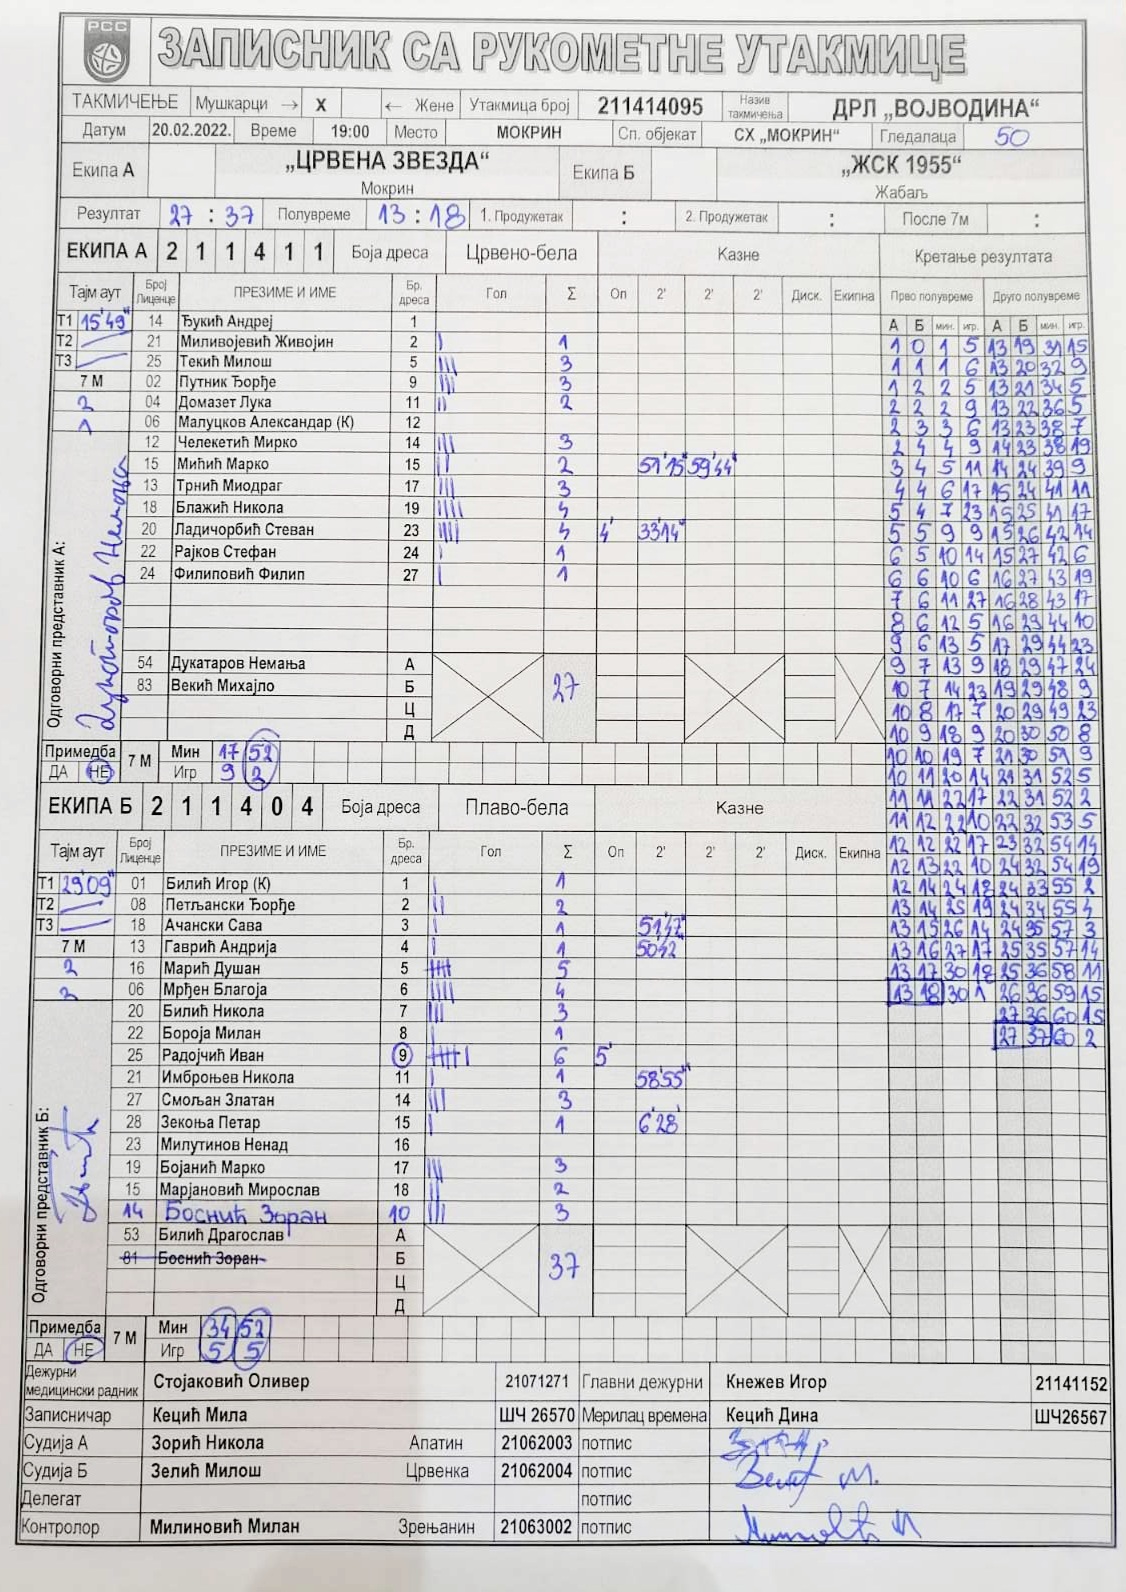 РСС
ЗАПИСНИК СА РУКОМЕТНЕ УТАКМИЦЕ
ТАКМИЧЕЊЕ Мушкарци → X ← Жене Утакмица број 211414095 Назив такмичења ДРЛ „ВОЈВОДИНА“
Датум 20.02.2022. Време 19:00 Место МОКРИН Сп. објекат СХ „МОКРИН“ Гледалаца 50
Екипа А „ЦРВЕНА ЗВЕЗДА“ Екипа Б „ЖСК 1955“
Мокрин Жабаљ
Резултат 27 : 37 Полувреме 13 : 18 1. Продужетак : 2. Продужетак : После 7м :
ЕКИПА А 2 1 1 4 1 1 Боја дреса Црвено-бела Казне Кретање резултата
Тајм аут Број Лиценце ПРЕЗИМЕ И ИМЕ Бр. дреса Гол Σ Оп 2' 2' 2' Диск. Екипна Прво полувреме Друго полувреме
А Б мин. игр. А Б мин. игр.
Т1 15'49" 14 Ђукић Андреј 1
Т2 21 Миливојевић Живојин 2 | 1 1 0 1 5 13 19 31 15
Т3 25 Текић Милош 5 ||| 3 1 1 1 6 13 20 32 9
7 М 02 Путник Ђорђе 9 ||| 3 1 2 2 5 13 21 34 5
2 04 Домазет Лука 11 || 2 2 2 2 9 13 22 36 5
06 Малуцков Александар (К) 12 2 3 3 6 13 23 38 7
12 Челекетић Мирко 14 ||| 3 2 4 4 9 14 23 38 19
15 Мићић Марко 15 || 2 51'15" 59'44" 3 4 5 11 14 24 39 9
13 Трнић Миодраг 17 ||| 3 4 4 6 17 15 24 41 11
18 Блажић Никола 19 |||| 4 5 4 7 23 15 25 41 17
20 Ладичорбић Стеван 23 |||| 4 4' 33'14" 5 5 9 9 15 26 42 14
22 Рајков Стефан 24 | 1 6 5 10 14 15 27 42 6
24 Филиповић Филип 27 | 1 6 6 10 6 16 27 43 19
7 6 11 27 16 28 43 17
8 6 12 5 16 29 44 10
9 6 13 5 17 29 44 23
54 Дукатаров Немања А 27 9 7 13 9 18 29 47 24
83 Векић Михајло Б 10 7 14 23 19 29 48 9
Ц 10 8 17 7 20 29 49 23
Д 10 9 18 9 20 30 50 8
Одговорни представник А:
Примедба 7 М Мин 17 52 10 10 19 7 21 30 51 9
ДА НЕ Игр 9 2 10 11 20 14 21 31 52 5
ЕКИПА Б 2 1 1 4 0 4 Боја дреса Плаво-бела Казне 11 11 22 17 22 31 52 2
11 12 22 10 22 32 53 5
Тајм аут Број Лиценце ПРЕЗИМЕ И ИМЕ Бр. дреса Гол Σ Оп 2' 2' 2' Диск. Екипна 12 12 22 17 23 32 54 14
12 13 22 10 24 32 54 19
Т1 29'09" 01 Билић Игор (К) 1 | 1 12 14 24 18 24 33 55 2
Т2 08 Петљански Ђорђе 2 || 2 13 14 25 19 24 34 55 4
Т3 18 Ачански Сава 3 | 1 51'42" 13 15 26 14 24 35 57 3
7 М 13 Гаврић Андрија 4 | 1 50'42 13 16 27 17 25 35 57 14
2 16 Марић Душан 5 5 13 17 30 18 25 36 58 11
2 06 Мрђен Благоја 6 |||| 4 13 18 30 1 26 36 59 15
20 Билић Никола 7 ||| 3 27 36 60 15
22 Бороја Милан 8 | 1 27 37 60 2
25 Радојчић Иван 9 6 5'
21 Имброњев Никола 11 | 1 58'55"
27 Смољан Златан 14 ||| 3
28 Зекоња Петар 15 | 1 6'28'
23 Милутинов Ненад 16
19 Бојанић Марко 17 ||| 3
15 Марјановић Мирослав 18 || 2
14 Боснић Зоран 10 ||| 3
53 Билић Драгослав А 37
81 Боснић Зоран Б
Ц
Д
Одговорни представник Б:
Примедба 7 М Мин 34 52
ДА НЕ Игр 5 5
Дежурни медицински радник Стојаковић Оливер 21071271 Главни дежурни Кнежев Игор 21141152
Записничар Кецић Мила ШЧ 26570 Мерилац времена Кецић Дина ШЧ26567
Судија А Зорић Никола Апатин 21062003 потпис
Судија Б Зелић Милош Црвенка 21062004 потпис
Делегат потпис
Контролор Милиновић Милан Зрењанин 21063002 потпис